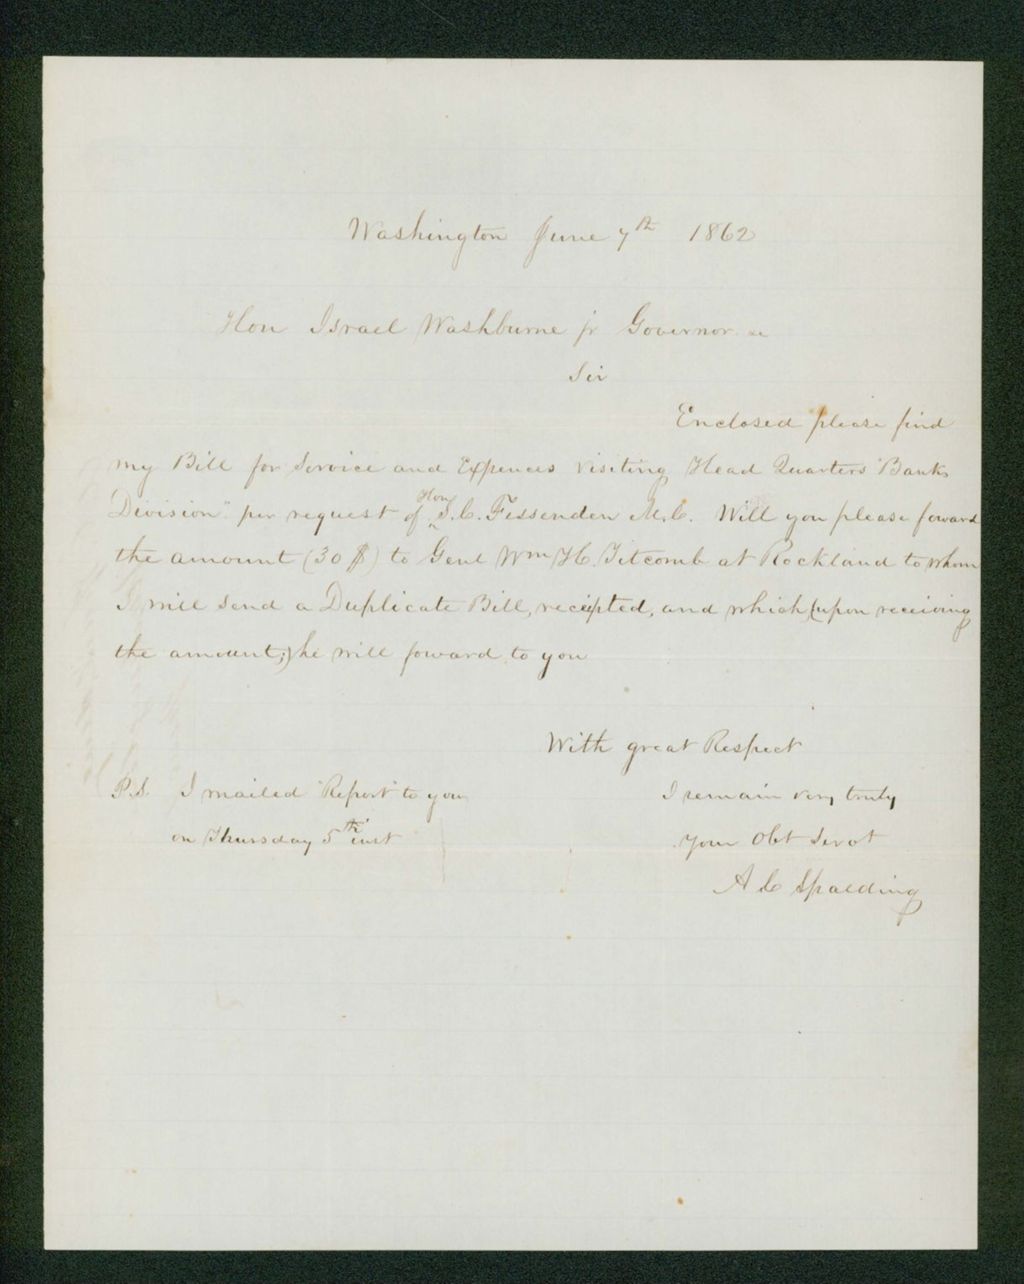 Washington June 7th 1862
Hon Israel Washburne jr Governor &c
Sir
Enclosed please find
my Bill for Service and Expences visiting Head Quarters "Banks
Division" per request of Hon S. C. Fessenden M.C. Will you please foward
the amount (30 $) to Genl Wm H. Titcomb at Rockland to whom
I will send a Duplicate Bill, reciepted, and which (upon receiving
the amount;) he will foward to you
With great Respect
I remain very truly
Your Obt Servt
A C Spalding
P.S. I mailed "Report" to you
on Thursday 5th inst